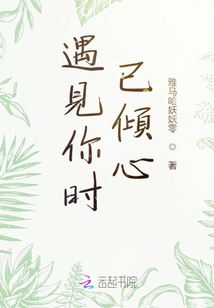 遇見你时
已傾心
雅马哈妖妖零
著
云起书院